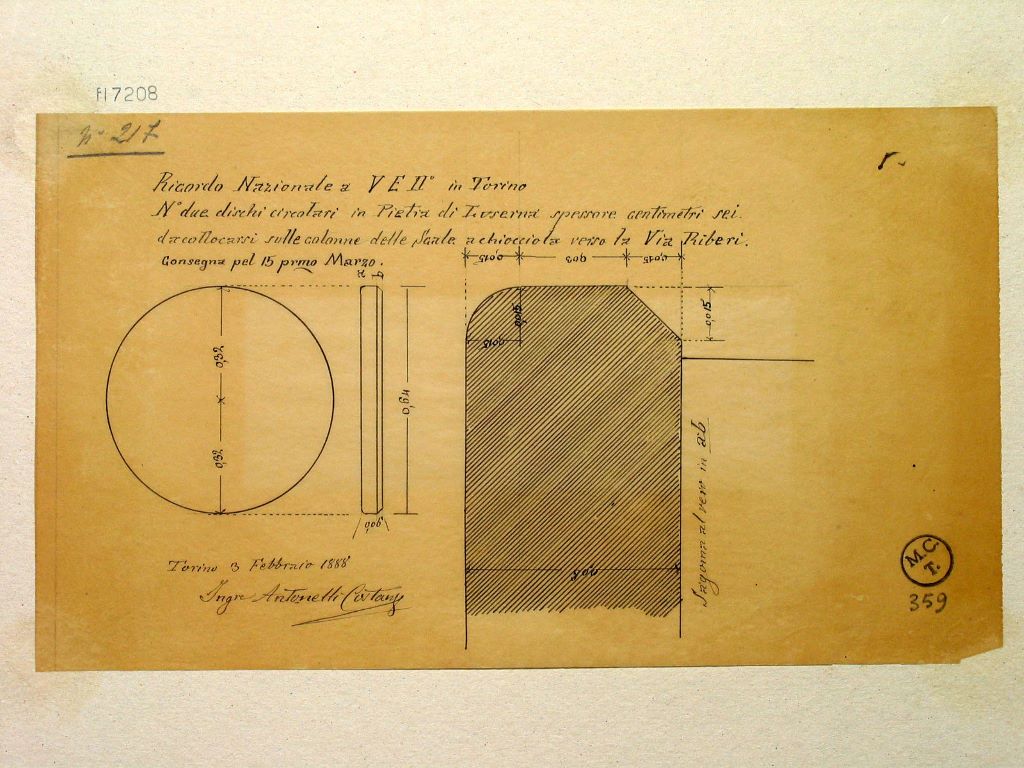 f17208
N° 217
Ricordo Nazionale a V E II° in Torino
N° due dischi circolari in Pietra di Luserna spessore centimetri sei.
da collocarsi sulle colonne delle Scale a chiocciola verso la Via Riberi.
Consegna pel 15 prmo Marzo.
a b
0,015 0,03 0,015
0,015
0,015
0,015
0,32
0,32
0,64
0,06
0,06
Sagoma al vero in ab
Torino 3 Febbraio 1888
Ingre Antonelli Costanzo
M.C.
T.
359